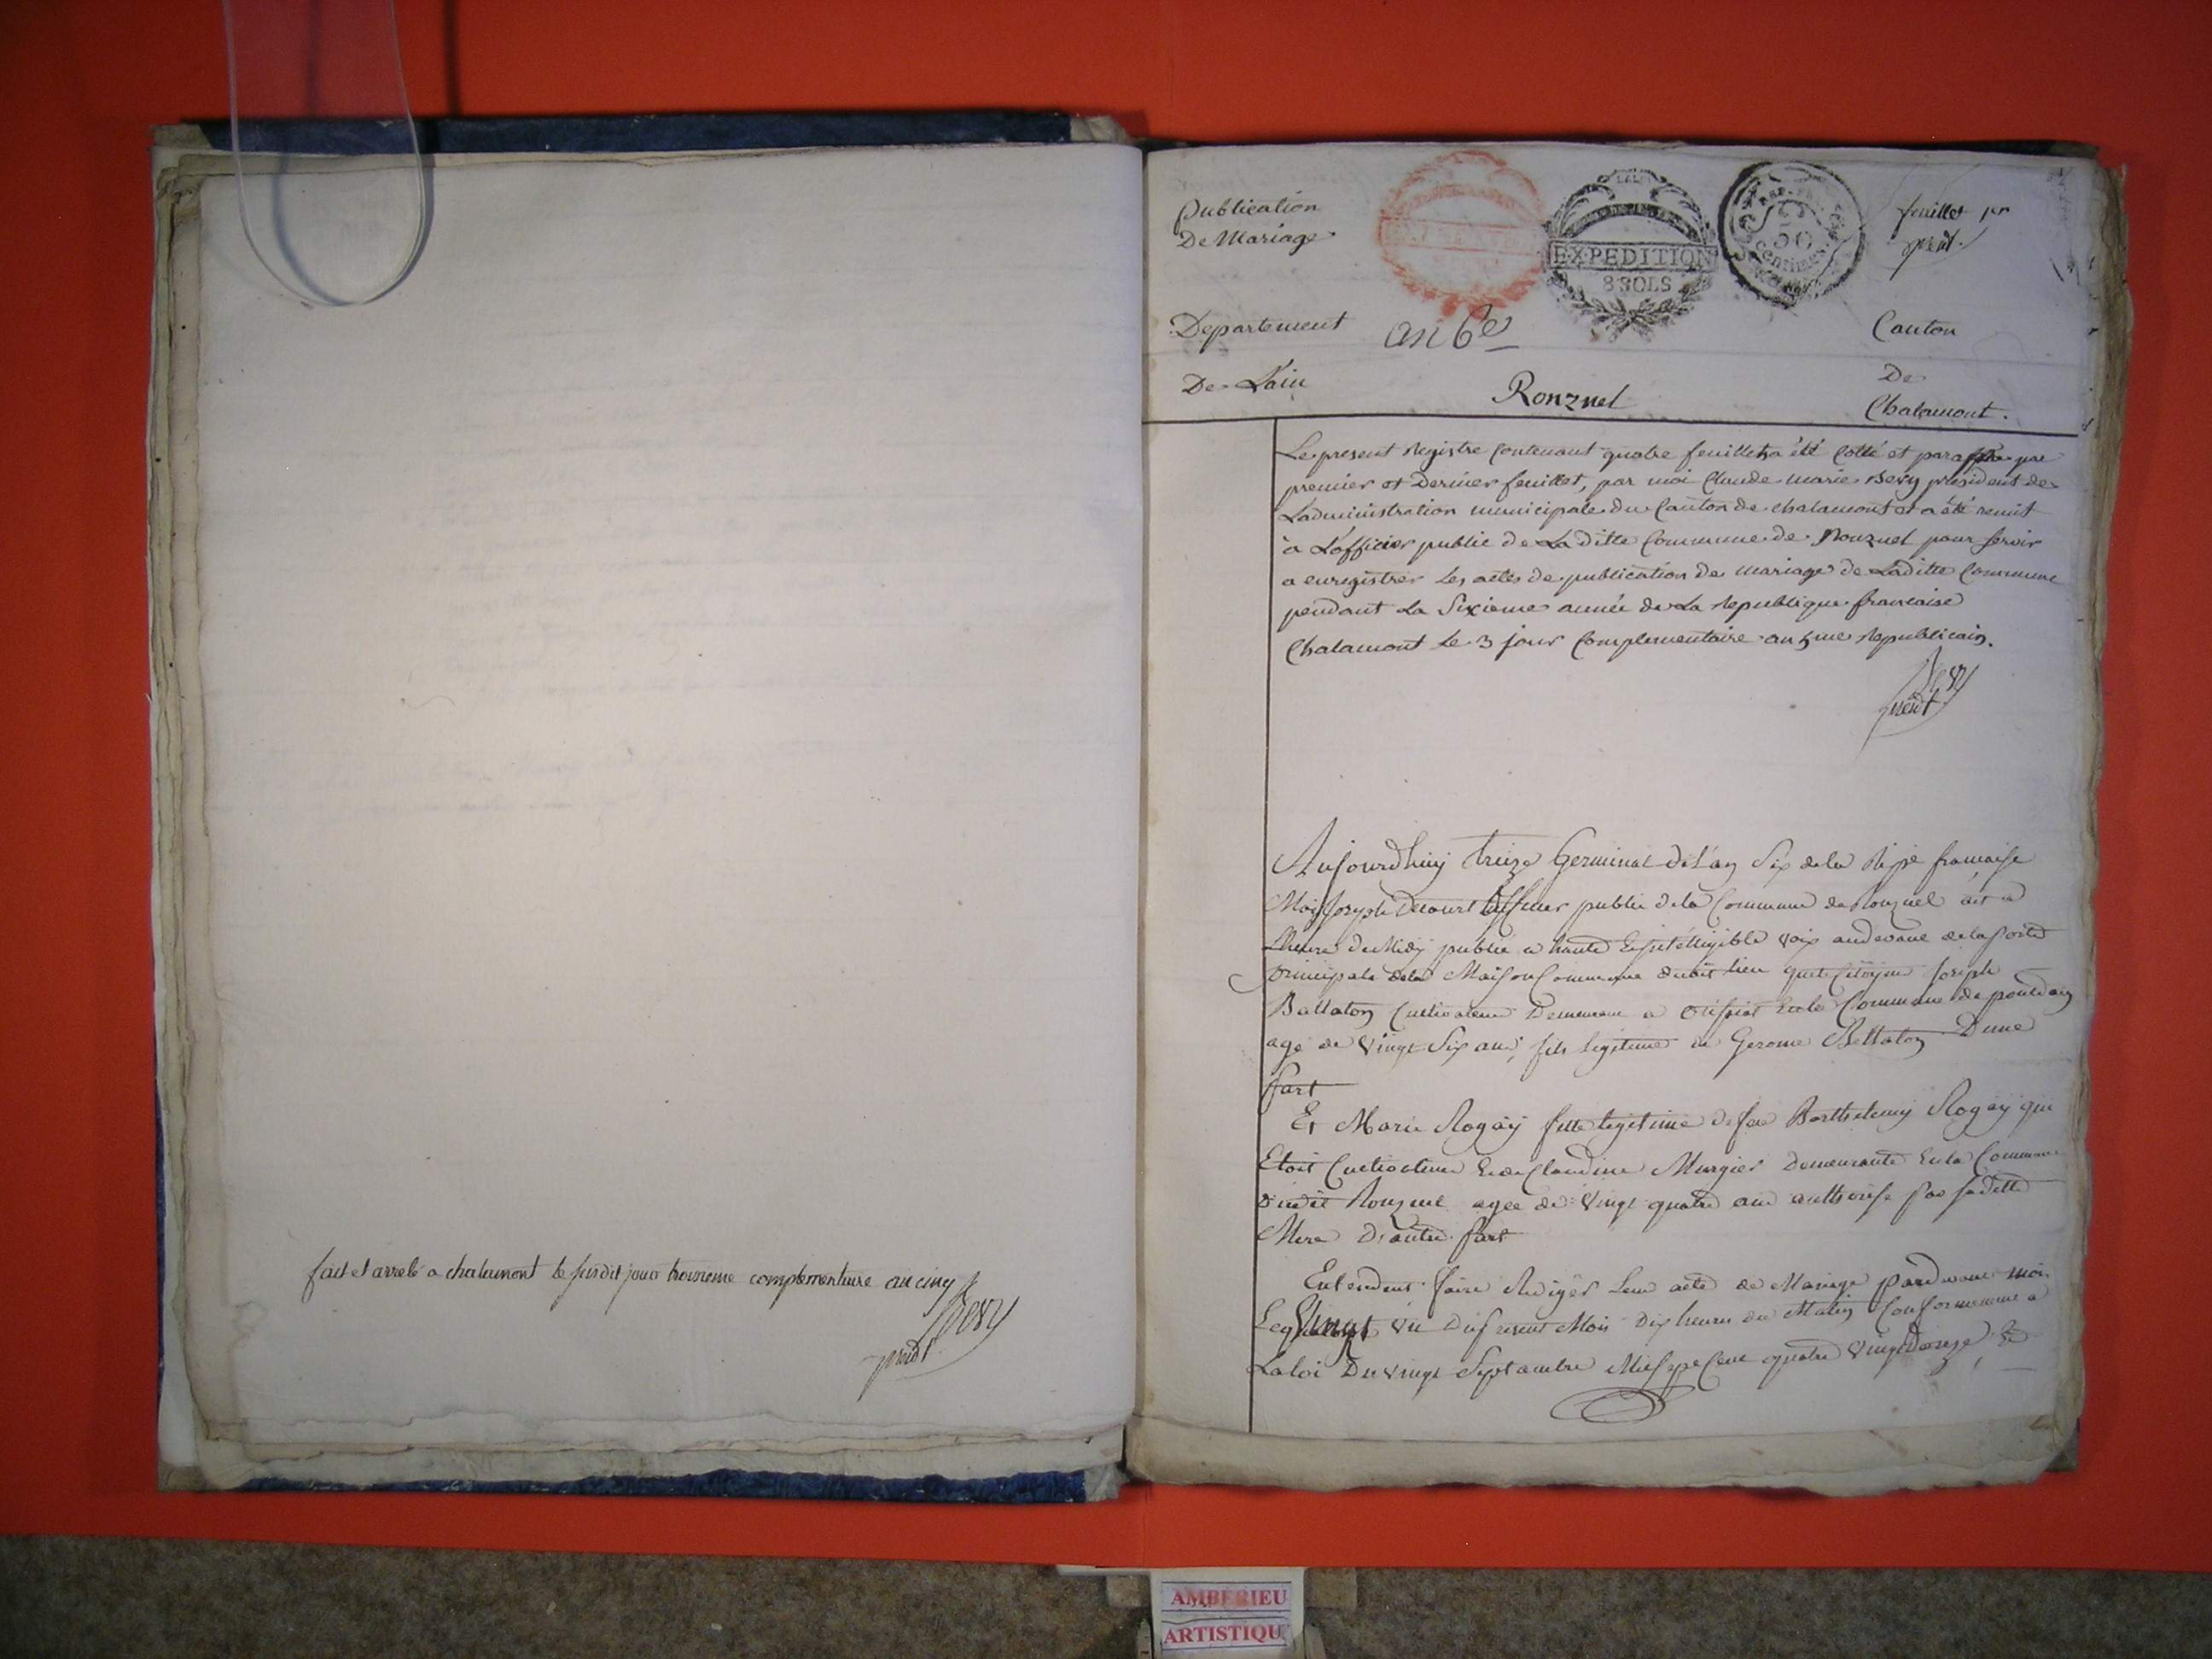 fait et arreté a chalamont le susdit jour troisieme complementaire an cinq
Bevy
presidt
publication
De Mariage
EXPEDITION
8 SOLS
50
Centimes
feuillet pr
presdt
Departement
an 6e
Canton
De L'ain
Ronznel
De
Chalamont.
Le present Registre Contenant quatre feuillets a été Collé et paraffé par
premier et Dernier feuillet, par moi Claude marie Bevy président de
Ladministration municipale du Canton de chalamont et a été remit
a L'officier publie de La ditte Commune de Ronznel pour servir
a enregistrer Les actes de publication de mariage de Laditte Commune
pendant La Sixieme année de La Republique francaise
Chalamont Le 3 jour Complementaire an 5me Republicain.
Bevy
presidt
Aujourdhuy treize Germinal de L'an Six de la Répe francaise
Moi Joseph officier publie de la Commune de Ronznel ait a
Lheure de Midy publié a haute Et intélligible voix audevant de la porte
principale dela Maison Commune dudit lieu que le Citoyen Joseph
Ballaton Cultivateur Demeurant a Commune de
agé de vingt Six ans, fils légitime de Gerome Ballaton Dune
part
Et Marie Rogay fille légitime de feu Barthelemy Rogay qui
Etoit Cultivateur Et de Claudine Murgier Demeurante En la Commune
dudit Ronznel agée de vingt quatre ans authorisé par saditte
Mere D'autre part
Entendent faire Rediger Leur acte de Mariage pardevant moi
Le Vingt du present Mois Dix heures du Matin Conformement a
La loi Du vingt Septembre Mil sept Cent quatre vingt Douze
AMBERIEU
ARTISTIQU